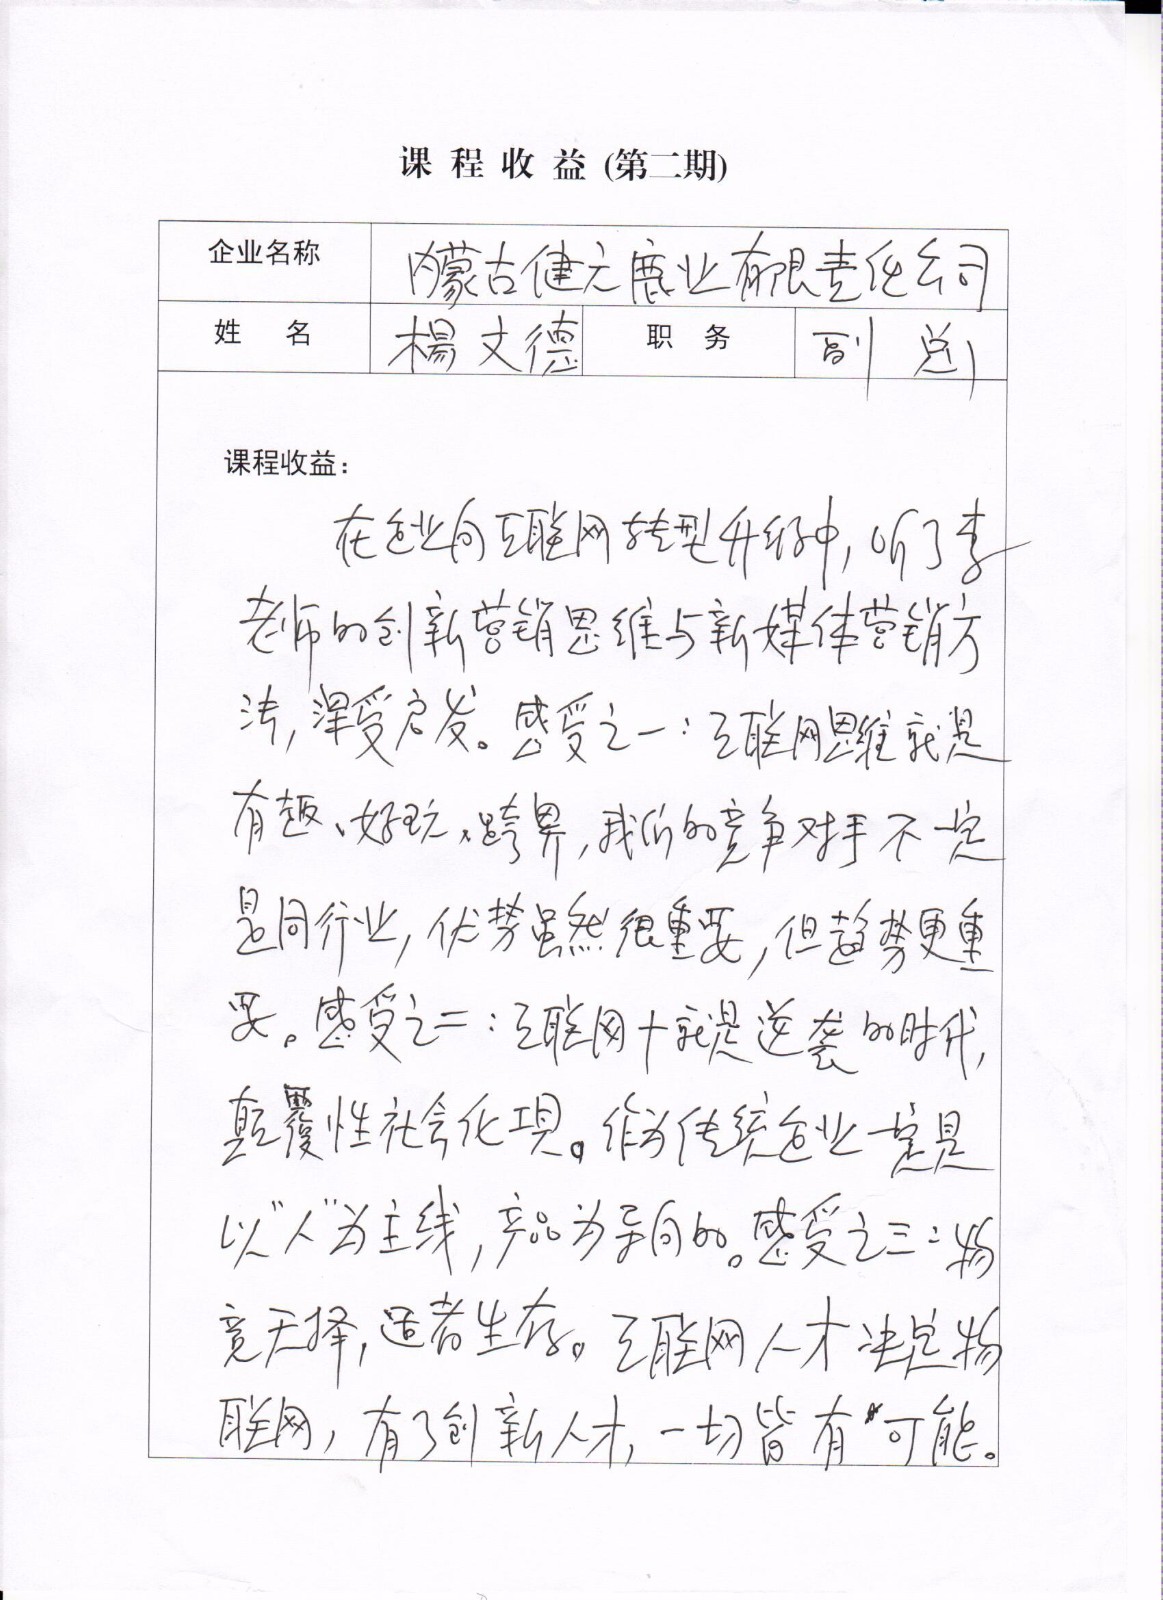 课 程 收 益 (第二期)
企业名称 内蒙古健元鹿业有限责任公司
姓 名 楊文德 职 务 副 总
课程收益：
在企业向互联网转型升级中，听了李
老师的创新营销思维与新媒体营销方
法，深受启发。感受之一：互联网思维就是
有趣、好玩、跨界，我们的竞争对手不一定
是同行业，优势虽然很重要，但趋势更重
要。感受之二：互联网十就是逆袭的时代，
颠覆性社会化工具。作为传统企业一定是
以“人”为主线，产品为导向的。感受之三：物
竞天择，适者生存。互联网人才决定物
联网，有了创新人才，一切皆有可能。